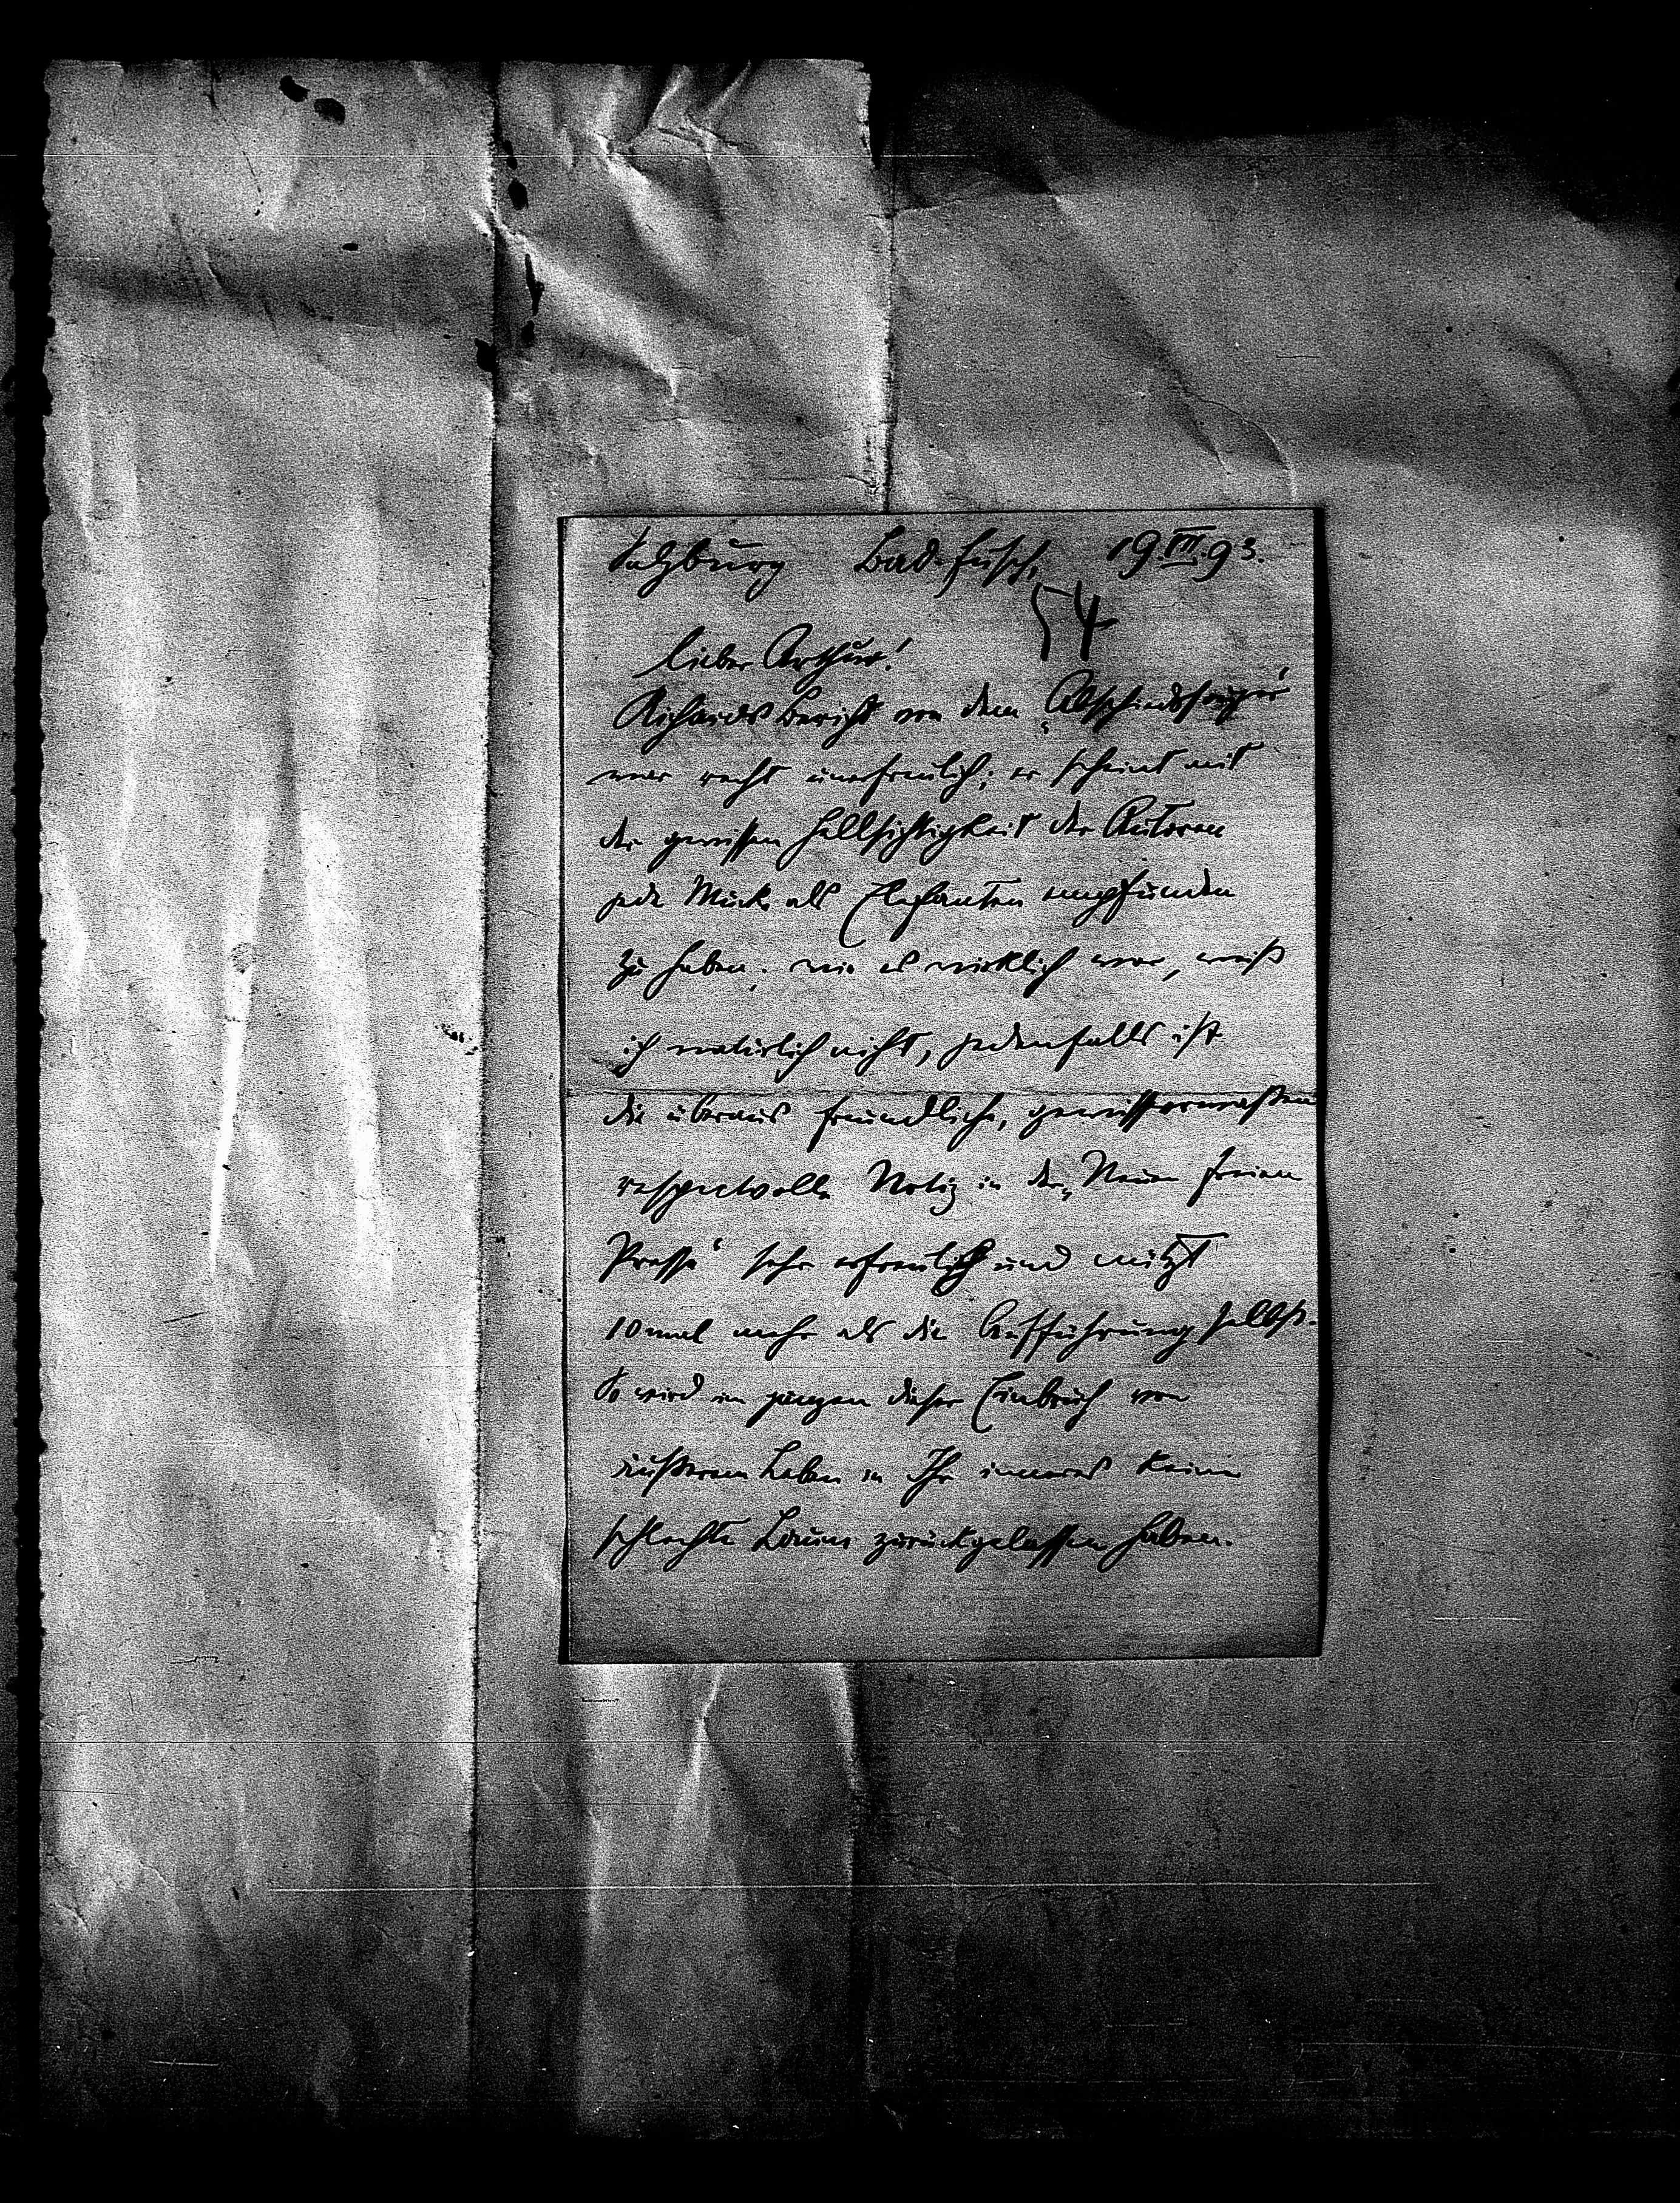 Salzburg Bad-Fusch, 19 VII 93.
54
lieber Arthur!
Richards Bericht von dem „Abschiedssouper“
war recht unerfreulich; er scheint mit
der gewissen Hellsichtigkeit der Autoren
jede Mücke als Elefanten empfunden
zu haben; wie es wirklich war, weiß
ich natürlich nicht, jedenfalls ist
die überaus freundliche, gewissermaßen
respectvolle Notiz in der „Neuen freien
Presse“ sehr erfreulich und nützt
10mal mehr als die Aufführung selbst.
So wird im ganzen dieser Einbruch von
äußerem Leben in Ihr inneres keine
schlechte Laune zurückgelassen haben.